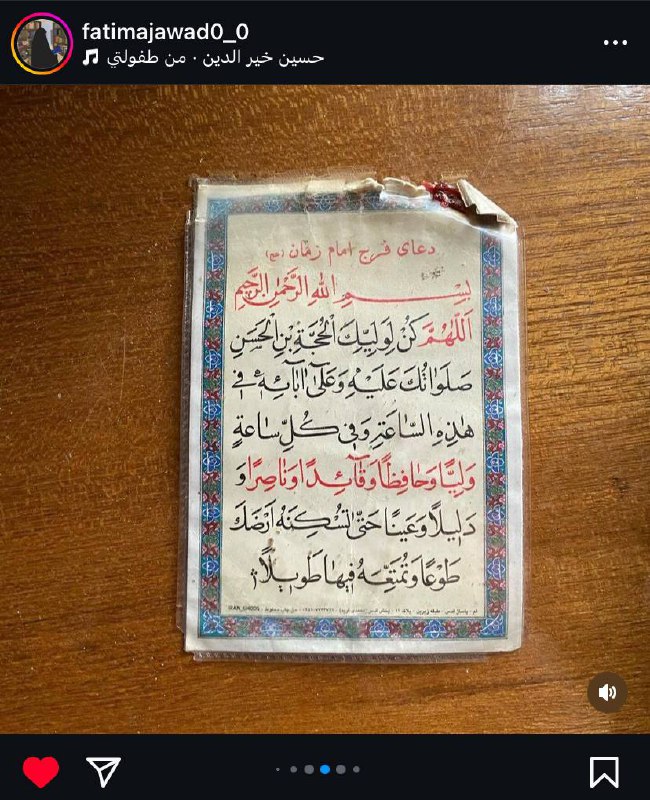 fatimajawad0_0
حسين خير الدين · من طفولتي
دعای فرج امام زمان (عج)
بِسْمِ اللهِ الرَّحْمٰنِ الرَّحِيمِ
اَللّٰهُمَّ كُنْ لِوَلِيِّكَ الْحُجَّةِ بْنِ الْحَسَنِ
صَلَوَاتُكَ عَلَيْهِ وَعَلىٰ اٰبَائِهِ فِي
هٰذِهِ السَّاعَةِ وَفِي كُلِّ سَاعَةٍ
وَلِيًّا وَحَافِظًا وَقَائِدًا وَنَاصِرًا وَ
دَلِيلًا وَعَيْنًا حَتّىٰ تُسْكِنَهُ اَرْضَكَ
طَوْعًا وَتُمَتِّعَهُ فِيهَا طَوِيلًا